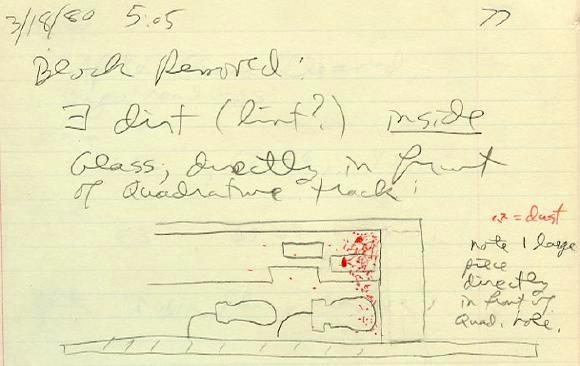 3/18/80 5:05 77
Block Removed:
∃ dirt (lint?) inside
Glass, directly in front
of Quadrature track:
= dust
note 1 large
piece
directly
in front of
Quad. hole.